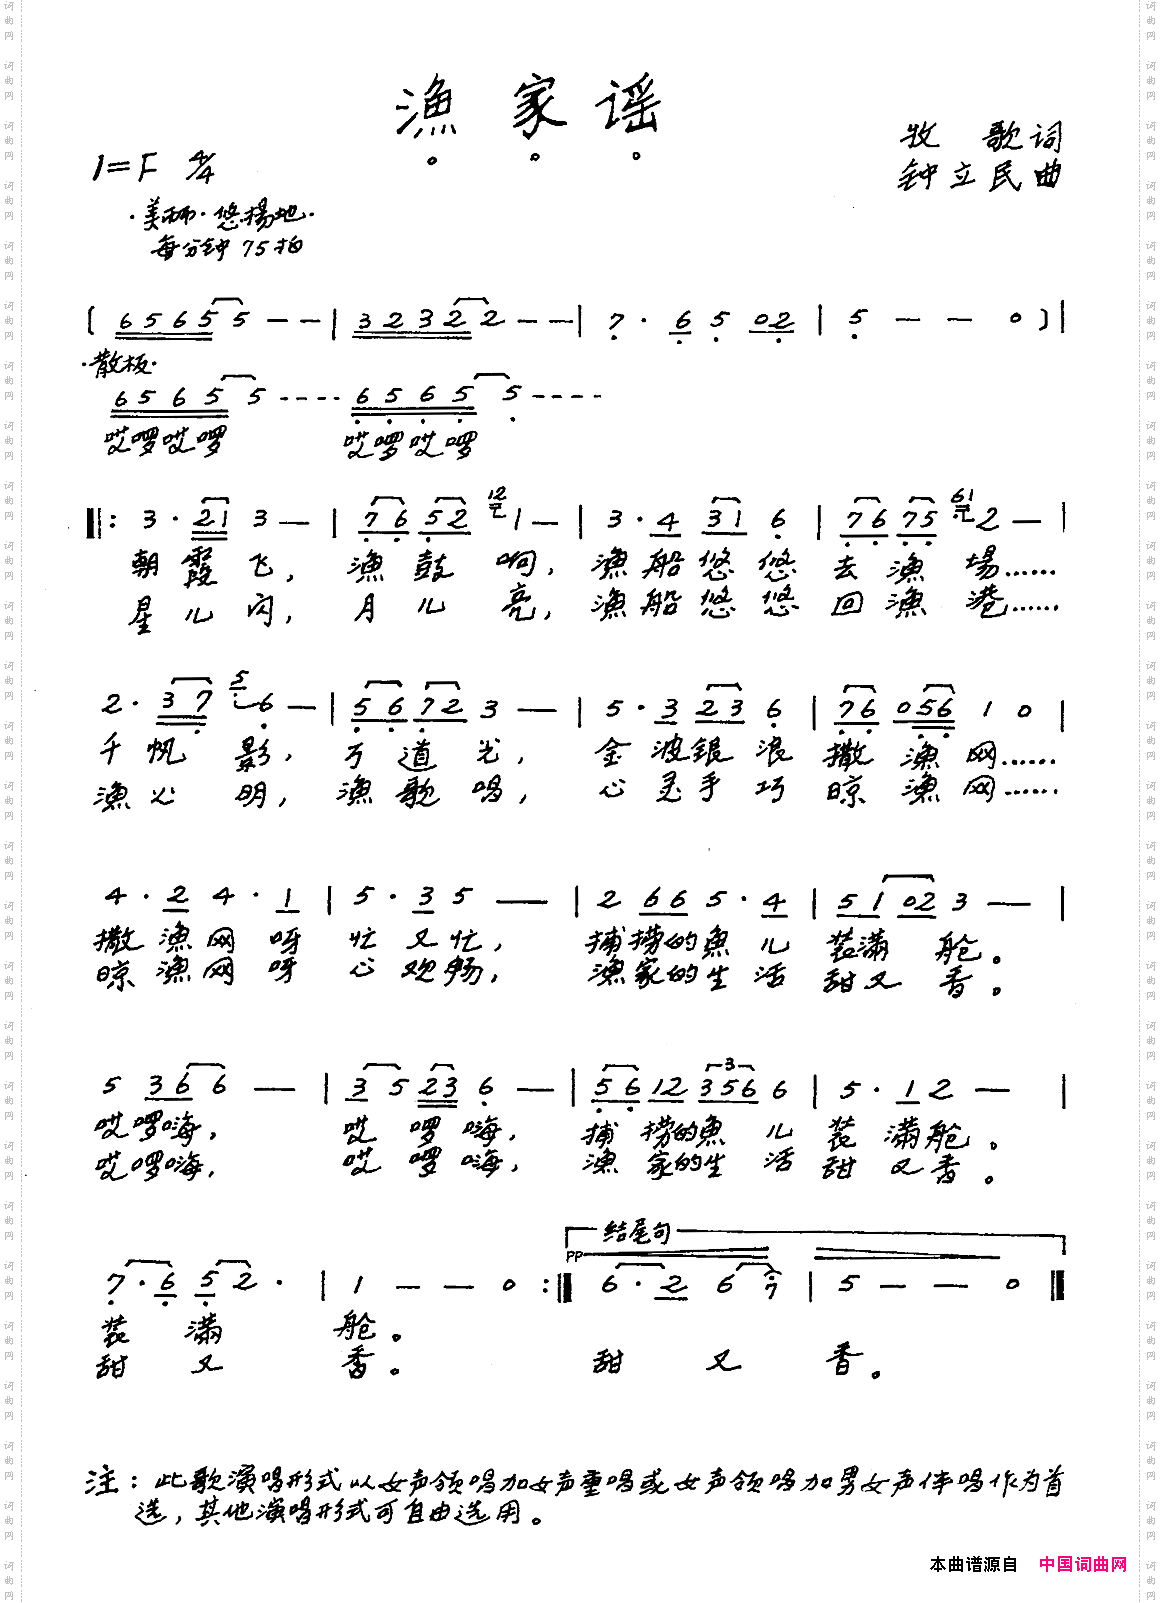 渔家谣
牧 歌词
1=F 4/4
钟立民曲
·美丽·悠扬地·
每分钟75拍
( 6 5 6 5 5 - - | 3 2 3 2 2 - - | 7 · 6 5 0 2 | 5 - - 0 ) |
·散板·
6 5 6 5 5 - - - - 6 5 6 5 5 - - - -
哎啰哎啰 哎啰哎啰
‖: 3 · 2 1 3 - | 7 6 5 2 12 1 - | 3 · 4 3 1 6 | 7 6 7 5 61 2 - |
朝霞飞， 渔鼓响， 渔船悠悠去渔場……
星儿闪， 月儿亮， 渔船悠悠回渔港……
2 · 3 7 5 6 - | 5 6 7 2 3 - | 5 · 3 2 3 6 | 7 6 0 5 6 1 0 |
千帆影， 万道光， 金波銀浪撒渔网……
渔火明， 渔歌唱， 心灵手巧晾渔网……
4 · 2 4 · 1 | 5 · 3 5 - | 2 6 6 5 · 4 | 5 1 0 2 3 - |
撒渔网呀忙又忙， 捕捞的魚儿装满舱。
晾渔网呀心欢畅， 渔家的生活甜又香。
5 3 6 6 - | 3 5 2 3 6 - | 5 6 1 2 3 5 6 6 | 5 · 1 2 - |
3
哎啰嗨， 哎啰嗨， 捕捞的魚儿装满舱。
哎啰嗨， 哎啰嗨， 渔家的生活甜又香。
结尾句
PP
7 · 6 5 2 · | 1 - - 0 :‖ 6 · 2 6 7 | 5 - - 0 ‖
装满舱。
甜又香。 甜又香。
注：此歌演唱形式以女声领唱加女声重唱或女声领唱加男女声伴唱作为首
选，其他演唱形式可自由选用。
本曲谱源自 中国词曲网